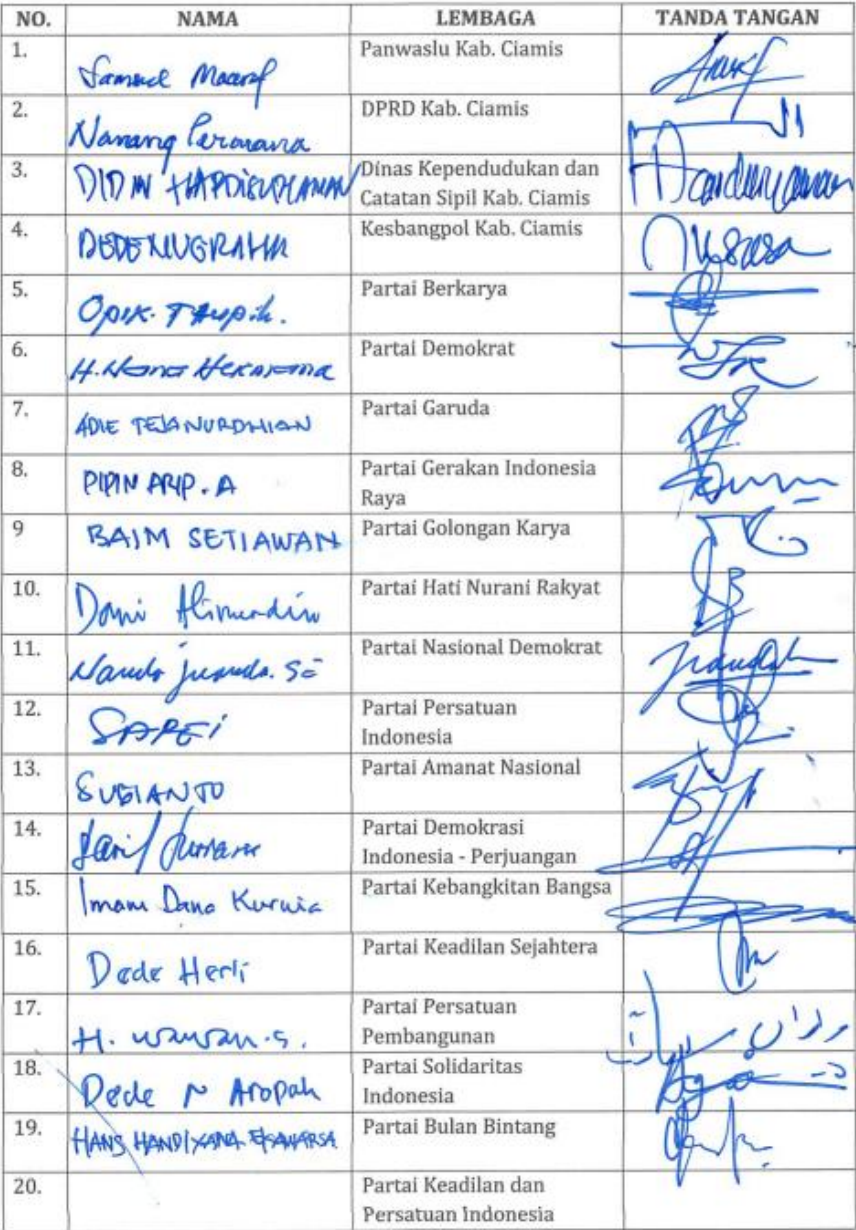 NO. NAMA LEMBAGA TANDA TANGAN
1. Samuel Maarif Panwaslu Kab. Ciamis
2. Nanang Permana DPRD Kab. Ciamis
3. DIDIN Dinas Kependudukan dan
Catatan Sipil Kab. Ciamis
4. DEDE NUGRAHA Kesbangpol Kab. Ciamis
5. Opik. Taupik. Partai Berkarya
6. H. Partai Demokrat
7. ADIE TEJANURDHIAN Partai Garuda
8. PIPIN ARIP. A Partai Gerakan Indonesia
Raya
9 BAIM SETIAWAN Partai Golongan Karya
10. Doni Alimudin Partai Hati Nurani Rakyat
11. Nanda Juanda. Partai Nasional Demokrat
12. SAPEI Partai Persatuan
Indonesia
13. SUGIANTO Partai Amanat Nasional
14. Partai Demokrasi
Indonesia - Perjuangan
15. Imam Dana Kurnia Partai Kebangkitan Bangsa
16. Dede Herli Partai Keadilan Sejahtera
17. H. wawan.s. Partai Persatuan
Pembangunan
18. Dede N Aropah Partai Solidaritas
Indonesia
19. HANS Partai Bulan Bintang
20. Partai Keadilan dan
Persatuan Indonesia